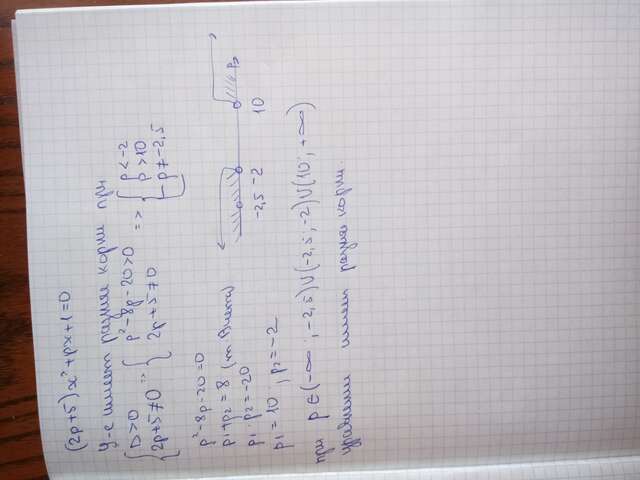 (2p+5)x²+px+1=0
у-е имеет разные корни при
{D>0 {p²-8p-20>0 {[p<-2
{2p+5≠0 => {2p+5≠0 => {[p>10
{p≠-2,5
p²-8p-20=0
p₁+p₂=8 (т. Виета)
p₁·p₂=-20
p₁=10, p₂=-2
-2,5 -2 10 p
при p∈(-∞; -2,5)∪(-2,5; -2)∪(10; +∞)
уравнение имеет разные корни.